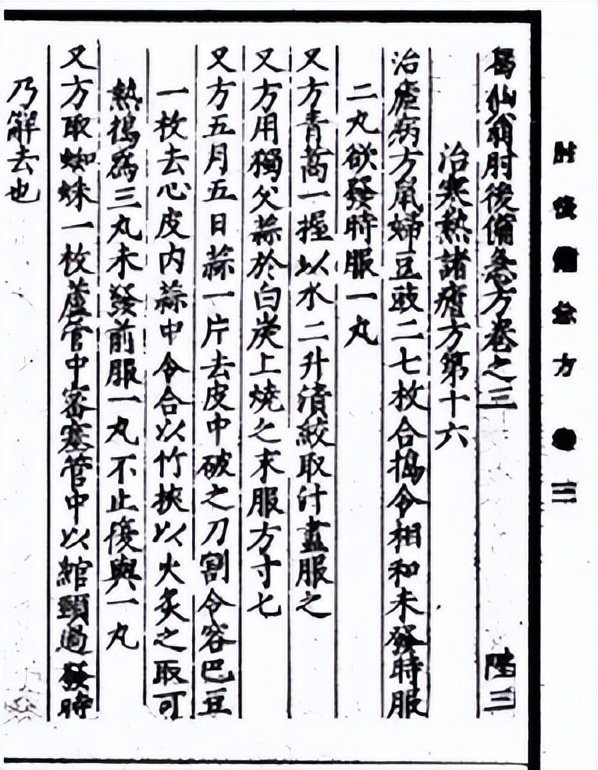 肘後備急方 卷三
葛仙翁肘後備急方卷之三 陸三
治寒熱諸瘧方第十六
治瘧病方鼠婦豆豉二七枚合搗令相和未發時服
二丸欲發時服一丸
又方青蒿一握以水二升漬絞取汁盡服之
又方用獨父蒜於白炭上燒之末服方寸七
又方五月五日蒜一片去皮中破之刀割令容巴豆
一枚去心皮内蒜中令合以竹挾以火炙之取可
熱搗為三丸未發前服一丸不止復與一丸
又方取蜘蛛一枚蘆管中密塞管中以綰頸過發時
乃解去也